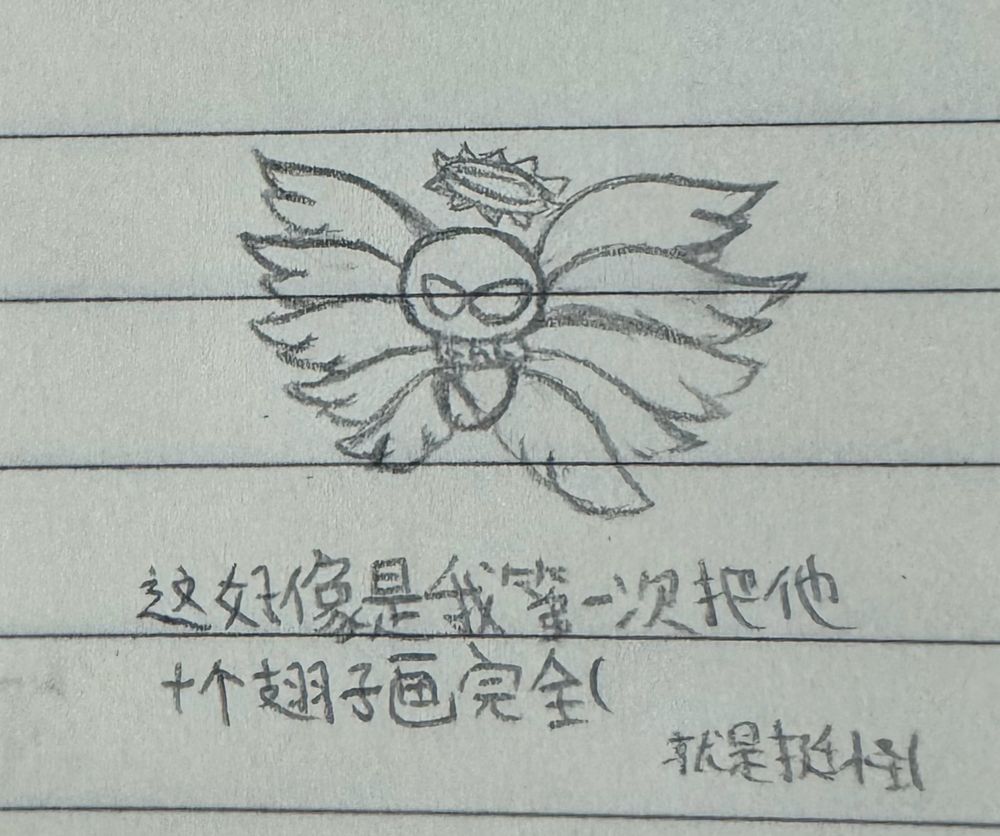 这好像是我第一次把他
十个翅子画完全(
就是挺怪(